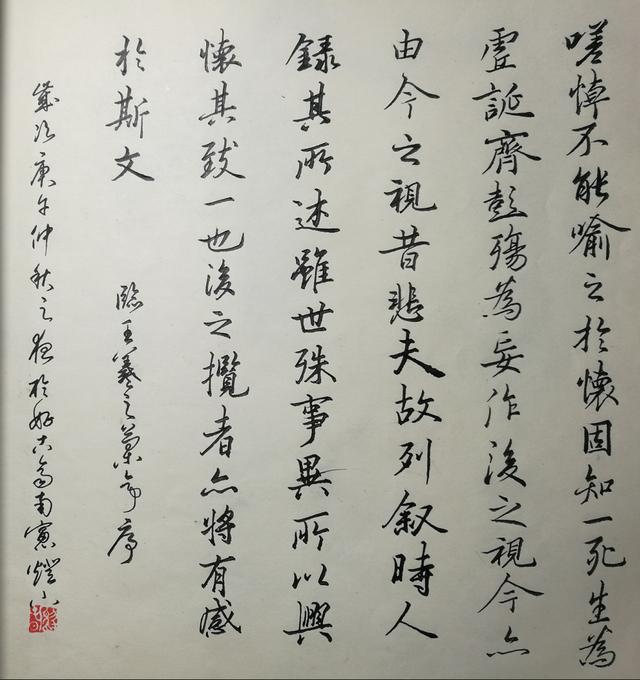 嗟悼不能喻之於懷固知一死生為
虛誕齊彭殤為妄作後之視今亦
由今之視昔悲夫故列叙時人
錄其所述雖世殊事異所以興
懷其致一也後之攬者亦將有感
於斯文
臨王羲之蘭亭序
歲次庚午仲秋之夜於好古齋南窗燈下